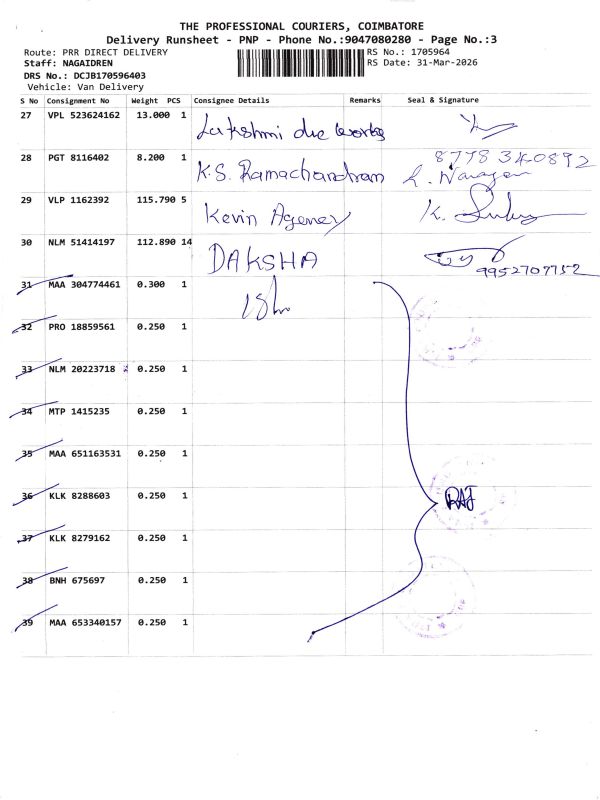 THE PROFESSIONAL COURIERS, COIMBATORE
Delivery Runsheet - PNP - Phone No.:9047080280 - Page No.:3
Route: PRR DIRECT DELIVERY RS No.: 1705964
Staff: NAGAIDREN RS Date: 31-Mar-2026
DRS No.: DCJB170596403
Vehicle: Van Delivery
S No Consignment No Weight PCS Consignee Details Remarks Seal & Signature
27 VPL 523624162 13.000 1 Lakshmi die works
28 PGT 8116402 8.200 1 K.S. Ramachandran 8778340892
29 VLP 1162392 115.790 5 Kevin Agency K.
30 NLM 51414197 112.890 14 DAKSHA 9952707752
31 MAA 304774461 0.300 1
32 PRO 18859561 0.250 1
33 NLM 20223718 0.250 1
34 MTP 1415235 0.250 1
35 MAA 651163531 0.250 1
36 KLK 8288603 0.250 1 RAJ
37 KLK 8279162 0.250 1
38 BNH 675697 0.250 1
39 MAA 653340157 0.250 1